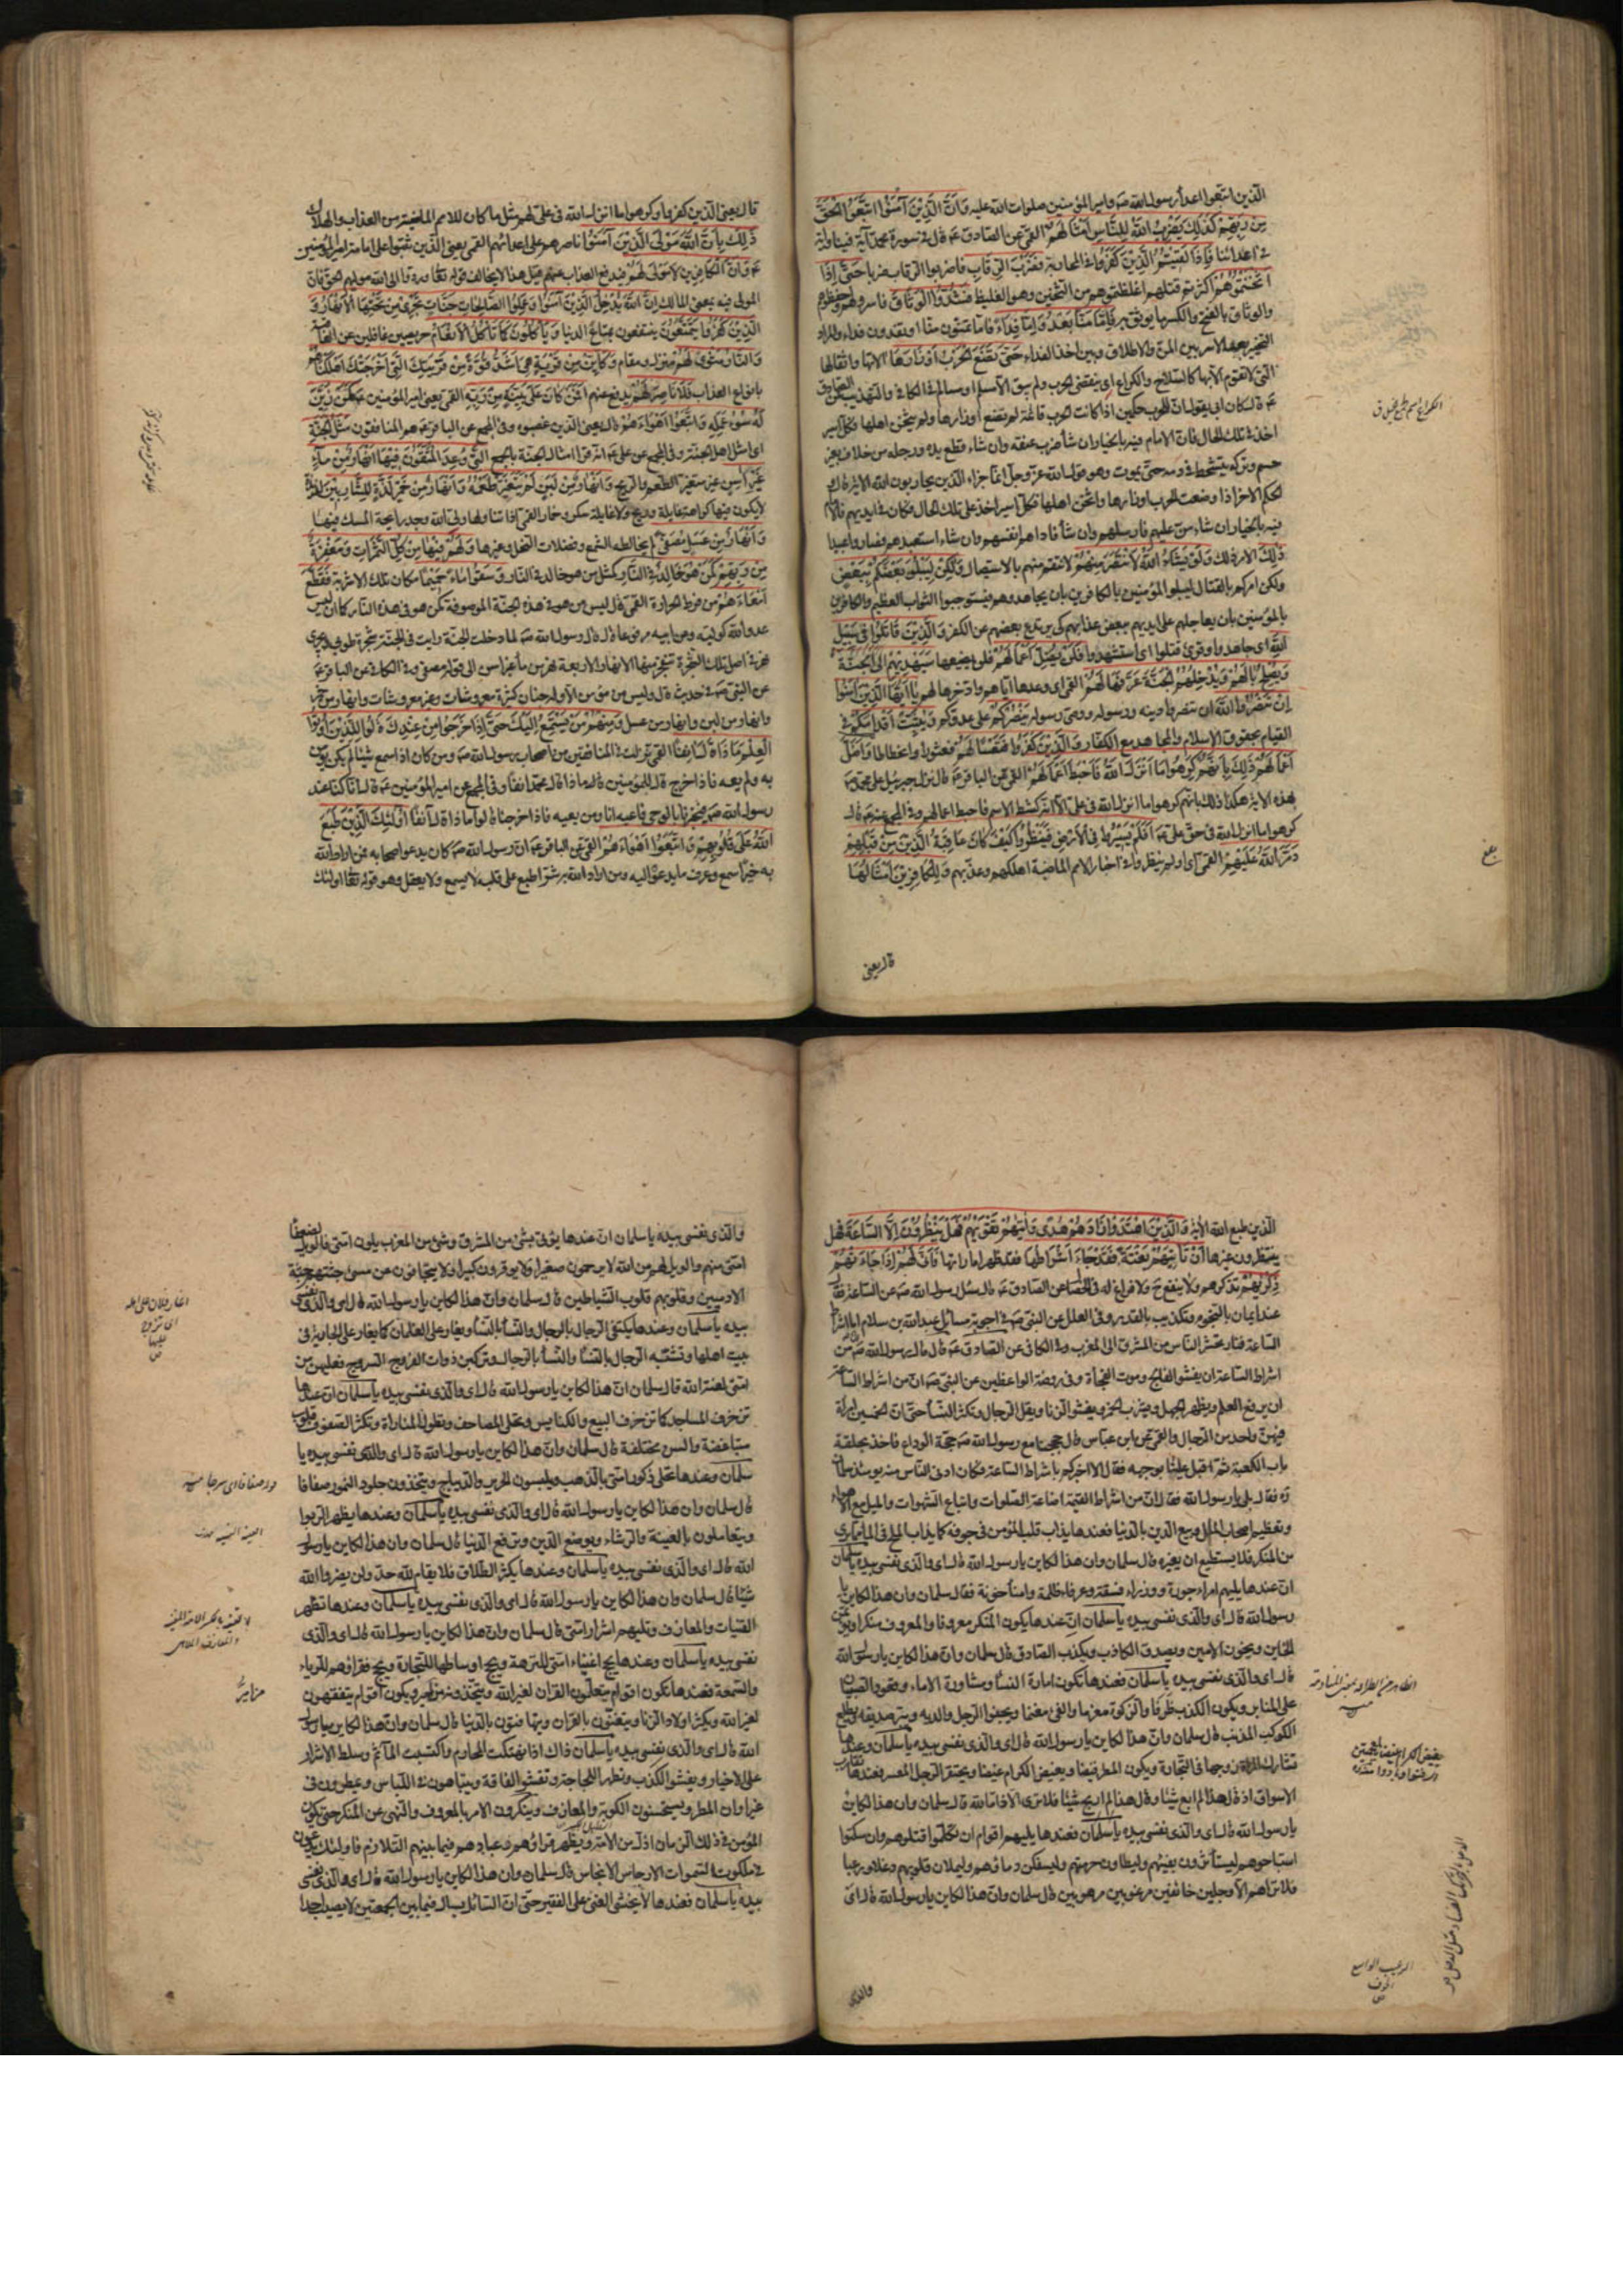 الذين اتبعوا اعداء رسول الله صہ وامير المؤمنين صلوات الله عليه وَاَنَّ الَّذِينَ آمَنُوا اتَّبَعُوا الْحَقَّ
مِنْ رَبِّهِمْ كَذٰلِكَ يَضْرِبُ اللّٰهُ لِلنَّاسِ اَمْثَالَهُمْ القمى عن الصادق عہ قال فى سورة محمد آية فينا وآية
فى اعدائنا فَاِذَا لَقِيتُمُ الَّذِينَ كَفَرُوا فى المحاربة فَضَرْبَ الرِّقَابِ فاضربوا الرقاب ضربا حَتّٰى اِذَا
اَثْخَنْتُمُوهُمْ اكثرتم قتلهم واغلظتموهم من الثخين وهو الغليظ فَشُدُّوا الْوَثَاقَ فاسروهم واحفظوهم
والوثاق بالفتح والكسر ما يوثق به فَاِمَّا مَنًّا بَعْدُ وَاِمَّا فِدَاءً فاما تمنون منا او تفدون فداء والمراد
التخيير بعد الاسر بين المن والاطلاق وبين اخذ الفداء حَتّٰى تَضَعَ الْحَرْبُ اَوْزَارَهَا آلاتها واثقالها
التى لا تقوم الا بها كالسلاح والكراع اى ينقضى الحرب ولم يبق الا مسلم او مسالم فى الكافى والتهذيب عن الصادق
عہ قال كان ابى يقول ان للحرب حكمين اذا كانت الحرب قائمة لم تضع اوزارها ولم يثخن اهلها فكل اسير
اخذ فى تلك الحال فان الامام فيه بالخيار ان شاء ضرب عنقه وان شاء قطع يده ورجله من خلاف بغير
حسم وتركه يتشحط فى دمه حتى يموت وهو قول الله عز وجل انما جزاء الذين يحاربون الله الآية قال
الحكم الآخر اذا وضعت الحرب اوزارها واثخن اهلها فكل اسير اخذ على تلك الحال فكان فى ايديهم فالامام
فيه بالخيار ان شاء من عليهم فارسلهم وان شاء فاداهم انفسهم وان شاء استعبدهم فصاروا عبيدا
ذٰلِكَ الامر ذلك وَلَوْ يَشَاءُ اللّٰهُ لَانْتَصَرَ مِنْهُمْ لانتقم منهم بالاستيصال وَلٰكِنْ لِيَبْلُوَ بَعْضَكُمْ بِبَعْضٍ
ولكن امركم بالقتال ليبلوا المؤمنين بالكافرين بان يجاهدوهم فيستوجبوا الثواب العظيم والكافرين
بالمؤمنين بان يعاجلهم على ايديهم ببعض عذابهم كى يرتدع بعضهم عن الكفر وَالَّذِينَ قَاتَلُوا فِى سَبِيلِ
اللّٰهِ اى جاهدوا وقرئ قتلوا اى استشهدوا فَلَنْ يُضِلَّ اَعْمَالَهُمْ فلن يضيعها سَيَهْدِيهِمْ الى الجنة
وَيُصْلِحُ بَالَهُمْ وَيُدْخِلُهُمُ الْجَنَّةَ عَرَّفَهَا لَهُمْ القمى اى وعدها اياهم وادخرها لهم يَا اَيُّهَا الَّذِينَ آمَنُوا
اِنْ تَنْصُرُوا اللّٰهَ ان تنصروا دينه ورسوله ووصى رسوله يَنْصُرْكُمْ على عدوكم وَيُثَبِّتْ اَقْدَامَكُمْ فى
القيام بحقوق الاسلام والمجاهدة مع الكفار وَالَّذِينَ كَفَرُوا فَتَعْسًا لَهُمْ فعثورا وانحطاطا وَاَضَلَّ
اَعْمَالَهُمْ ذٰلِكَ بِاَنَّهُمْ كَرِهُوا مَا اَنْزَلَ اللّٰهُ فَاَحْبَطَ اَعْمَالَهُمْ القمى عن الباقر عہ قال نزل جبرئيل على محمد صہ
بهذه الآية هكذا ذلك بانهم كرهوا ما انزل الله فى على الا انه كشط الاسم فاحبط اعمالهم وفى المجمع عنه عہ قال
كرهوا ما انزل الله فى حق على عہ اَفَلَمْ يَسِيرُوا فِى الْاَرْضِ فَيَنْظُرُوا كَيْفَ كَانَ عَاقِبَةُ الَّذِينَ مِنْ قَبْلِهِمْ
دَمَّرَ اللّٰهُ عَلَيْهِمْ القمى اى اولم ينظروا فى اخبار الامم الماضية اهلكهم وعذبهم وَلِلْكَافِرِينَ اَمْثَالُهَا
قال يعنى
قال يعنى الذين كفروا وكرهوا ما انزل الله فى على لهم مثل ما كان للامم الماضية من العذاب والهلاك
ذٰلِكَ بِاَنَّ اللّٰهَ مَوْلَى الَّذِينَ آمَنُوا ناصرهم على اعدائهم القمى يعنى الذين ثبتوا على امامة امير المؤمنين
عہ وَاَنَّ الْكَافِرِينَ لَا مَوْلٰى لَهُمْ فيدفع العذاب عنهم قيل هذا لا يخالف قوله تعالى وردوا الى الله موليهم الحق فان
المولى فيه بمعنى المالك اِنَّ اللّٰهَ يُدْخِلُ الَّذِينَ آمَنُوا وَعَمِلُوا الصَّالِحَاتِ جَنَّاتٍ تَجْرِى مِنْ تَحْتِهَا الْاَنْهَارُ وَ
الَّذِينَ كَفَرُوا يَتَمَتَّعُونَ ينتفعون بمتاع الدنيا وَيَأْكُلُونَ كَمَا تَأْكُلُ الْاَنْعَامُ حريصين غافلين عن العاقبة
وَالنَّارُ مَثْوًى لَهُمْ منزل ومقام وَكَاَيِّنْ مِنْ قَرْيَةٍ هِىَ اَشَدُّ قُوَّةً مِنْ قَرْيَتِكَ الَّتِى اَخْرَجَتْكَ اَهْلَكْنَاهُمْ
بانواع العذاب فَلَا نَاصِرَ لَهُمْ يدفع عنهم اَفَمَنْ كَانَ عَلٰى بَيِّنَةٍ مِنْ رَبِّهِ القمى يعنى امير المؤمنين عہ كَمَنْ زُيِّنَ
لَهُ سُوءُ عَمَلِهِ وَاتَّبَعُوا اَهْوَاءَهُمْ قال يعنى الذين غصبوه وفى المجمع عن الباقر عہ هم المنافقون مَثَلُ الْجَنَّةِ
اى امثل اهل الجنة وفى المجمع عن على عہ انه قرأ امثال الجنة بالجمع الَّتِى وُعِدَ الْمُتَّقُونَ فِيهَا اَنْهَارٌ مِنْ مَاءٍ
غَيْرِ آسِنٍ غير متغير الطعم والريح وَاَنْهَارٌ مِنْ لَبَنٍ لَمْ يَتَغَيَّرْ طَعْمُهُ وَاَنْهَارٌ مِنْ خَمْرٍ لَذَّةٍ لِلشَّارِبِينَ لذيذة
لا يكون فيها كراهة غايلة وريح ولا غايلة سكر وخمار القمى اذا تناولها ولى الله وجد رايحة المسك فيها
وَاَنْهَارٌ مِنْ عَسَلٍ مُصَفًّى لم يخالطه الشمع وفضلات النحل وغيرها وَلَهُمْ فِيهَا مِنْ كُلِّ الثَّمَرَاتِ وَمَغْفِرَةٌ
مِنْ رَبِّهِمْ كَمَنْ هُوَ خَالِدٌ فِى النَّارِ كمثل من هو خالد فى النار وَسُقُوا مَاءً حَمِيمًا مكان تلك الاشربة فَقَطَّعَ
اَمْعَاءَهُمْ من فرط الحرارة القمى قال ليس من هو فى هذه الجنة الموصوفة كمن هو فى هذه النار كما ان ليس
عدو الله كوليه وعن ابيه مرفوعا قال قال رسول الله صہ لما دخلت الجنة رايت فى الجنة شجرة طوبى ويجرى
نهر فى اصل تلك الشجرة تنفجر منها الانهار الاربعة نهر من ماء غير اسن الى قوله مصفى وفى الكافى عن الباقر عہ
عن النبى صہ فى حديث قال وليس من مؤمن الا وله جنان كثيرة معروشات وغير معروشات وانهار من خمر
وانهار من لبن وانهار من عسل وَمِنْهُمْ مَنْ يَسْتَمِعُ اِلَيْكَ حَتّٰى اِذَا خَرَجُوا مِنْ عِنْدِكَ قَالُوا لِلَّذِينَ اُوتُوا
الْعِلْمَ مَاذَا قَالَ آنِفًا القمى نزلت فى المنافقين من اصحاب رسول الله صہ ومن كان اذا سمع شيئا لم يكن يؤمن
به ولم يعه فاذا خرج قال للمؤمنين ماذا قال محمد انفا وفى المجمع عن امير المؤمنين عہ قال انا كنا عند
رسول الله صہ فيخبرنا بالوحى فاعيه انا ومن يعيه فاذا خرجنا قالوا ماذا قال آنفا اُولٰئِكَ الَّذِينَ طَبَعَ
اللّٰهُ عَلٰى قُلُوبِهِمْ وَاتَّبَعُوا اَهْوَاءَهُمْ القمى عن الباقر عہ ان رسول الله صہ كان يدعو اصحابه فمن اراد الله
به خيرا سمع وعرف ما يدعوه اليه ومن اراد الله به شرا طبع على قلبه لا يسمع ولا يعقل وهو قوله تعالى اولئك
الذين طبع الله الآية وَالَّذِينَ اهْتَدَوْا زَادَهُمْ هُدًى وَآتٰيهُمْ تَقْوٰيهُمْ فَهَلْ يَنْظُرُونَ اِلَّا السَّاعَةَ فهل
ينتظرون غيرها اَنْ تَأْتِيَهُمْ بَغْتَةً فَقَدْ جَاءَ اَشْرَاطُهَا فقد ظهر اماراتها فَاَنّٰى لَهُمْ اِذَا جَاءَتْهُمْ
ذِكْرٰيهُمْ تذكرهم ولا ينفع ح ولا فراغ له فى الخصال عن الصادق عہ قال سئل رسول الله صہ عن الساعة فقال
عند ايمان بالنجوم وتكذيب بالقدر وفى العلل عن النبى صہ فى اجوبة مسائل عبد الله بن سلام اما اشراط
الساعة فنار تحشر الناس من المشرق الى المغرب وفى الكافى عن الصادق عہ قال قال رسول الله صہ من
اشراط الساعة ان يفشو الفالج وموت الفجأة وفى روضة الواعظين عن النبى صہ ان من اشراط الساعة
ان يرفع العلم ويظهر الجهل ويشرب الخمر ويفشو الزنا ويقل الرجال وتكثر النساء حتى ان الخمسين امرأة
فيهن واحد من الرجال والقمى عن ابن عباس قال حججنا مع رسول الله صہ حجة الوداع فاخذ بحلقة
باب الكعبة ثم اقبل علينا بوجهه فقال الا اخبركم باشراط الساعة فكان ادنى الناس منه يومئذ سلمان
ره فقال بلى يا رسول الله فقال ان من اشراط القيمة اضاعة الصلوات واتباع الشهوات والميل مع الاهواء
وتعظيم اصحاب المال وبيع الدين بالدنيا فعندها يذاب قلب المؤمن فى جوفه كما يذاب الملح فى الماء مما يرى
من المنكر فلا يستطيع ان يغيره قال سلمان وان هذا لكاين يا رسول الله قال اى والذى نفسى بيده يا سلمان
ان عندها يليهم امراء جورة ووزراء فسقة وعرفاء ظلمة وامناء خونة فقال سلمان وان هذا لكاين يا
رسول الله قال اى والذى نفسى بيده يا سلمان ان عندها يكون المنكر معروفا والمعروف منكرا ويؤتمن
الخاين ويخون الامين ويصدق الكاذب ويكذب الصادق قال سلمان وان هذا لكاين يا رسول الله
قال اى والذى نفسى بيده يا سلمان فعندها تكون امارة النساء ومشاورة الاماء وقعود الصبيان
على المنابر ويكون الكذب ظرفا والزكوة مغرما والفئ مغنما ويجفوا الرجل والديه ويبر صديقه ويطلع
الكوكب المذنب قال سلمان وان هذا لكاين يا رسول الله قال اى والذى نفسى بيده يا سلمان وعندها
تشارك المرأة زوجها فى التجارة ويكون المطر قيضا ويغيض الكرام غيضا ويحتقر الرجل المعسر فعندها تقارب
الاسواق اذ قال هذا لم ابع شيئا وقال هذا لم اربح شيئا فلا ترى الا ذاما لله قال سلمان وان هذا لكاين
يا رسول الله قال اى والذى نفسى بيده يا سلمان فعندها يليهم اقوام ان تكلموا قتلوهم وان سكتوا
استباحوهم ليستأثرون بفيئهم وليطأون حرمتهم وليسفكن دماؤهم وليملان قلوبهم دغلا ورعبا
فلا تراهم الا وجلين خائفين مرعوبين مرهوبين قال سلمان وان هذا لكاين يا رسول الله قال اى
والذى
والذى نفسى بيده يا سلمان ان عندها يؤتى بشئ من المشرق وشئ من المغرب يلون امتى فالويل لضعفاء
امتى منهم والويل لهم من الله لا يرحمون صغيرا ولا يوقرون كبيرا ولا يتجافون عن مسئ جثتهم جثة
الآدميين وقلوبهم قلوب الشياطين قال سلمان وان هذا لكاين يا رسول الله قال اى والذى نفسى
بيده يا سلمان وعندها يكتفى الرجال بالرجال والنساء بالنساء ويغار على الغلمان كما يغار على الجارية فى
بيت اهلها وتشبه الرجال بالنساء والنساء بالرجال وتركبن ذوات الفروج السروج فعليهن من
امتى لعنة الله قال سلمان ان هذا لكاين يا رسول الله قال اى والذى نفسى بيده يا سلمان ان عندها
تزخرف المساجد كما تزخرف البيع والكنايس وتحلى المصاحف وتطول المنارات وتكثر الصفوف قلوب
متباغضة والسن مختلفة قال سلمان وان هذا لكاين يا رسول الله قال اى والذى نفسى بيده يا
سلمان وعندها تحلى ذكور امتى بالذهب ويلبسون الحرير والديباج ويتخذون جلود النمور صفاقا
قال سلمان وان هذا لكاين يا رسول الله قال اى والذى نفسى بيده يا سلمان وعندها يظهر الربوا
ويتعاملون بالعينة والرشاء ويوضع الدين وترفع الدنيا قال سلمان وان هذا لكاين يا رسول
الله قال اى والذى نفسى بيده يا سلمان وعندها يكثر الطلاق فلا يقام لله حد ولن يضروا الله
شيئا قال سلمان وان هذا لكاين يا رسول الله قال اى والذى نفسى بيده يا سلمان وعندها تظهر
القينات والمعازف وتليهم اشرار امتى قال سلمان وان هذا لكاين يا رسول الله قال اى والذى
نفسى بيده يا سلمان وعندها يحج اغنياء امتى للنزهة ويحج اوساطها للتجارة ويحج فقراؤهم للرياء
والسمعة فعندها تكون اقوام يتعلمون القران لغير الله ويتخذونه مزامير ويكون اقوام يتفقهون
لغير الله ويكثر اولاد الزنا ويتغنون بالقران ويتهافتون بالدنيا قال سلمان وان هذا لكاين يا رسول
الله قال اى والذى نفسى بيده يا سلمان ذاك اذا انتهكت المحارم واكتسبت المآثم وسلط الاشرار
على الاخيار ويفشوا الكذب وتظهر اللجاجة وتفشو الفاقة ويتباهون فى اللباس ويمطرون فى
غير اوان المطر ويستحسنون الكوبة والمعازف وينكرون الامر بالمعروف والنهى عن المنكر حتى يكون
المؤمن فى ذلك الزمان اذل من الامة ويظهر قراؤهم وعبادهم فيما بينهم التلاوم فاولئك يدعون
فى ملكوت السموات الارجاس الانجاس قال سلمان وان هذا لكاين يا رسول الله قال اى والذى نفسى
بيده يا سلمان فعندها لا يخشى الغنى على الفقير حتى ان السائل يسال فيما بين الجمعتين لا يصيب احدا